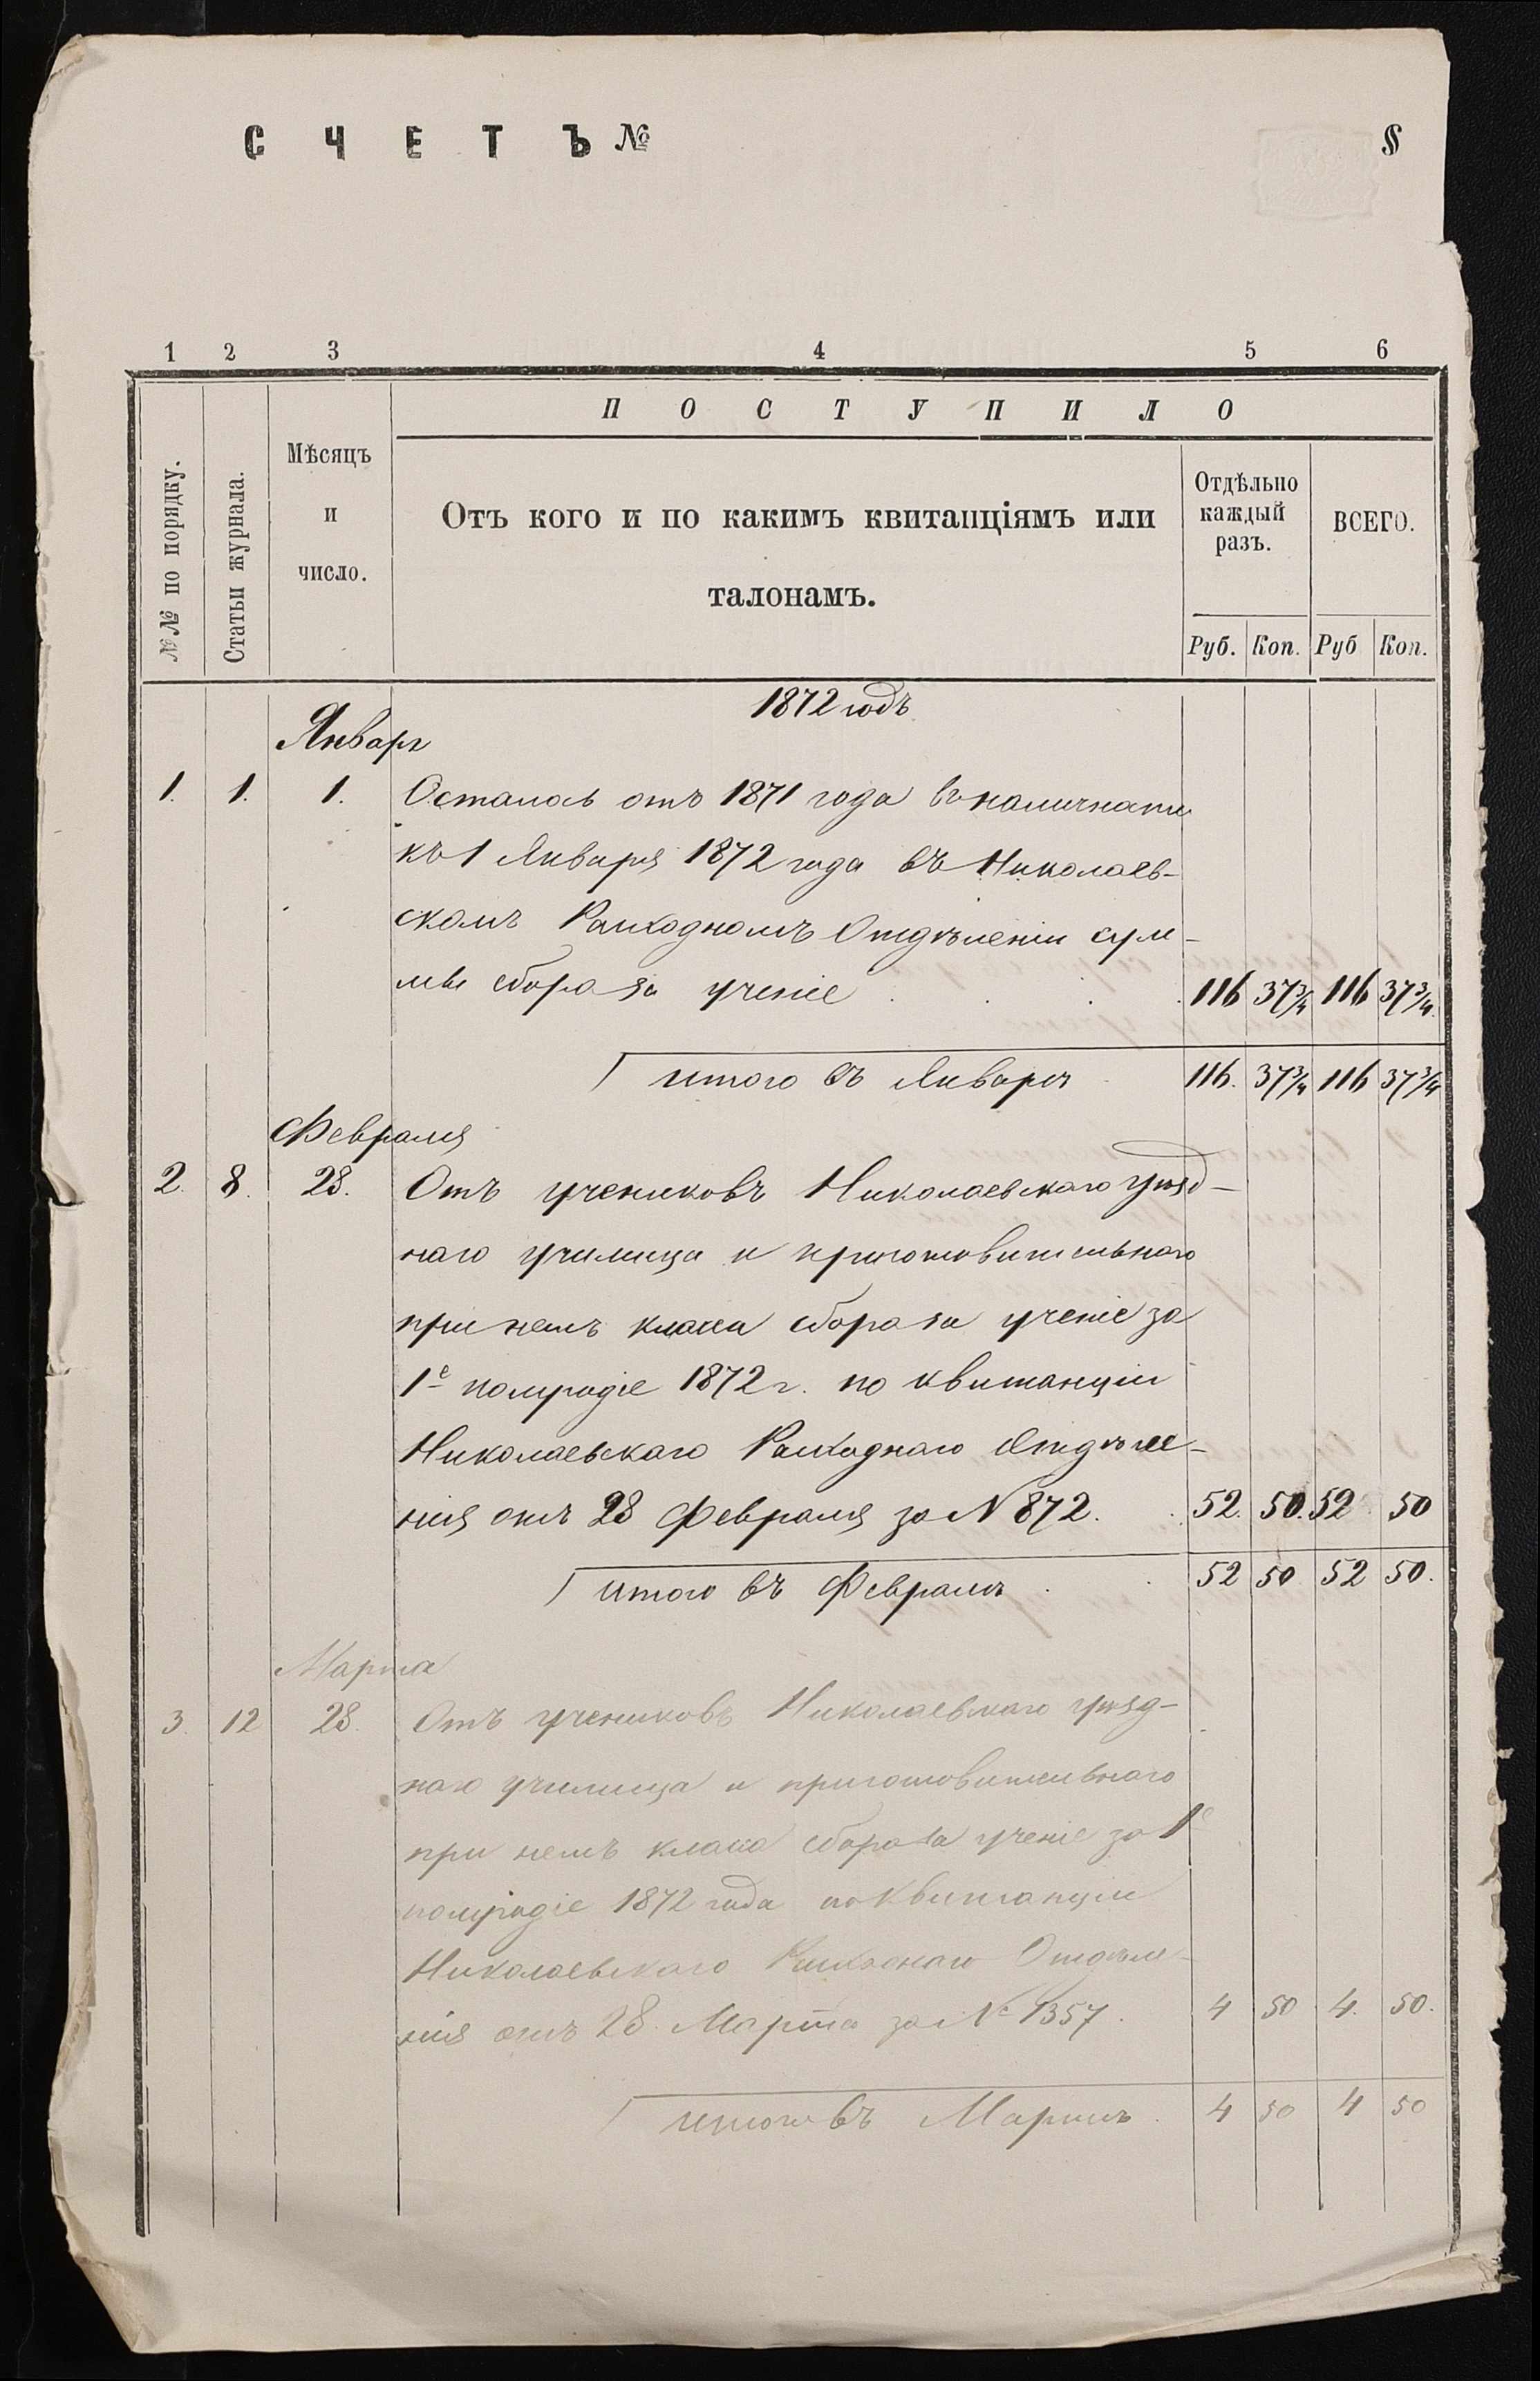 СЧЕТЪ № §
1 2 3 4 5 6
ПОСТУПИЛО
№№ по порядку.
Статьи журнала.
Мѣсяцъ
и
число.
Отъ кого и по какимъ квитанціямъ или
талонамъ.
Отдѣльно
каждый
разъ.
ВСЕГО.
Руб. Коп. Руб Коп.
1872 годъ
Январь
1. 1. 1. Осталось отъ 1871 года въ наличности
къ 1 Января 1872 года въ Николаев-
скомъ Расходномъ Отдѣленіи сум-
мы сбора за ученіе 116 37¾ 116 37¾
итого въ Январѣ 116. 37¾ 116 37¾
Февраля
2. 8. 28. Отъ учениковъ Николаевскаго уѣзд-
наго училища и приготовительнаго
при немъ класса сбора за ученіе за
1е полугодіе 1872 г. по квитанціи
Николаевскаго Расходнаго Отдѣле-
нія отъ 28 Февраля за N 872. 52. 50. 52 50
итого въ Февралѣ 52 50 52 50.
Марта
3. 12 28. Отъ учениковъ Николаевскаго уѣзд-
наго училища и приготовительнаго
при немъ класса сбора за ученіе за 1е
полугодіе 1872 года по Квитанціи
Николаевскаго Расходнаго Отдѣле-
нія отъ 28 Марта за № 1357. 4 50 4. 50.
итого въ Мартѣ 4 50 4 50